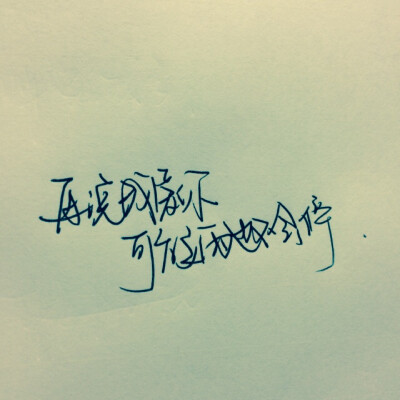 再说我爱你
可能雨也不会停.